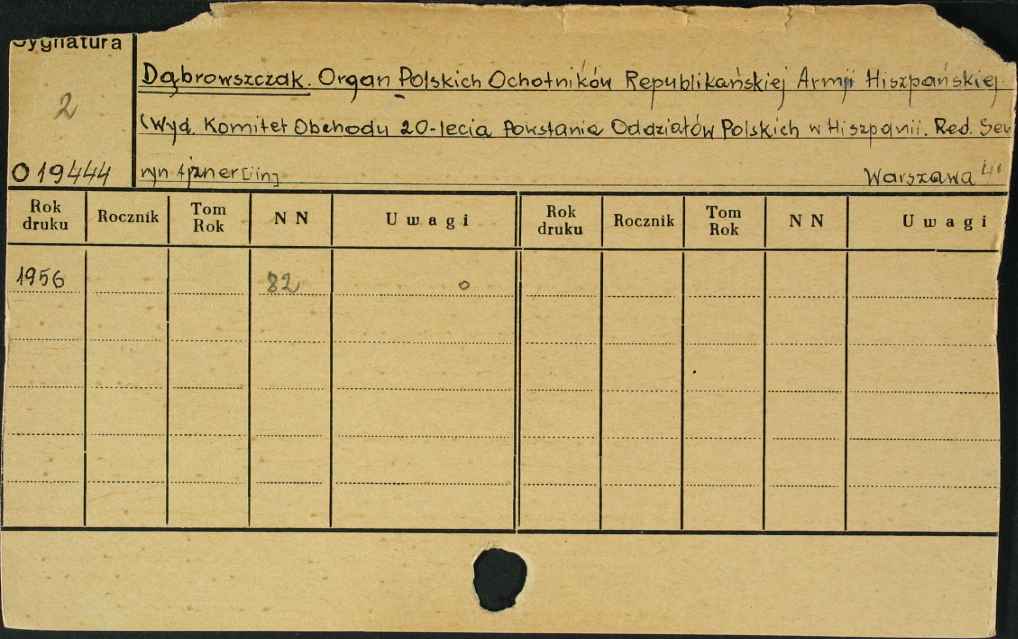 Sygnatura
2
O 19444
Dąbrowszczak. Organ Polskich Ochotników Republikańskiej Armji Hiszpańskiej
(Wyd. Komitet Obchodu 20-lecia Powstania Oddziałów Polskich w Hiszpanii. Red. Sew
ryn Ajzner [i in]
Warszawa 4°
Rok druku Rocznik Tom Rok N N Uwagi Rok druku Rocznik Tom Rok N N Uwagi
1956 82 o